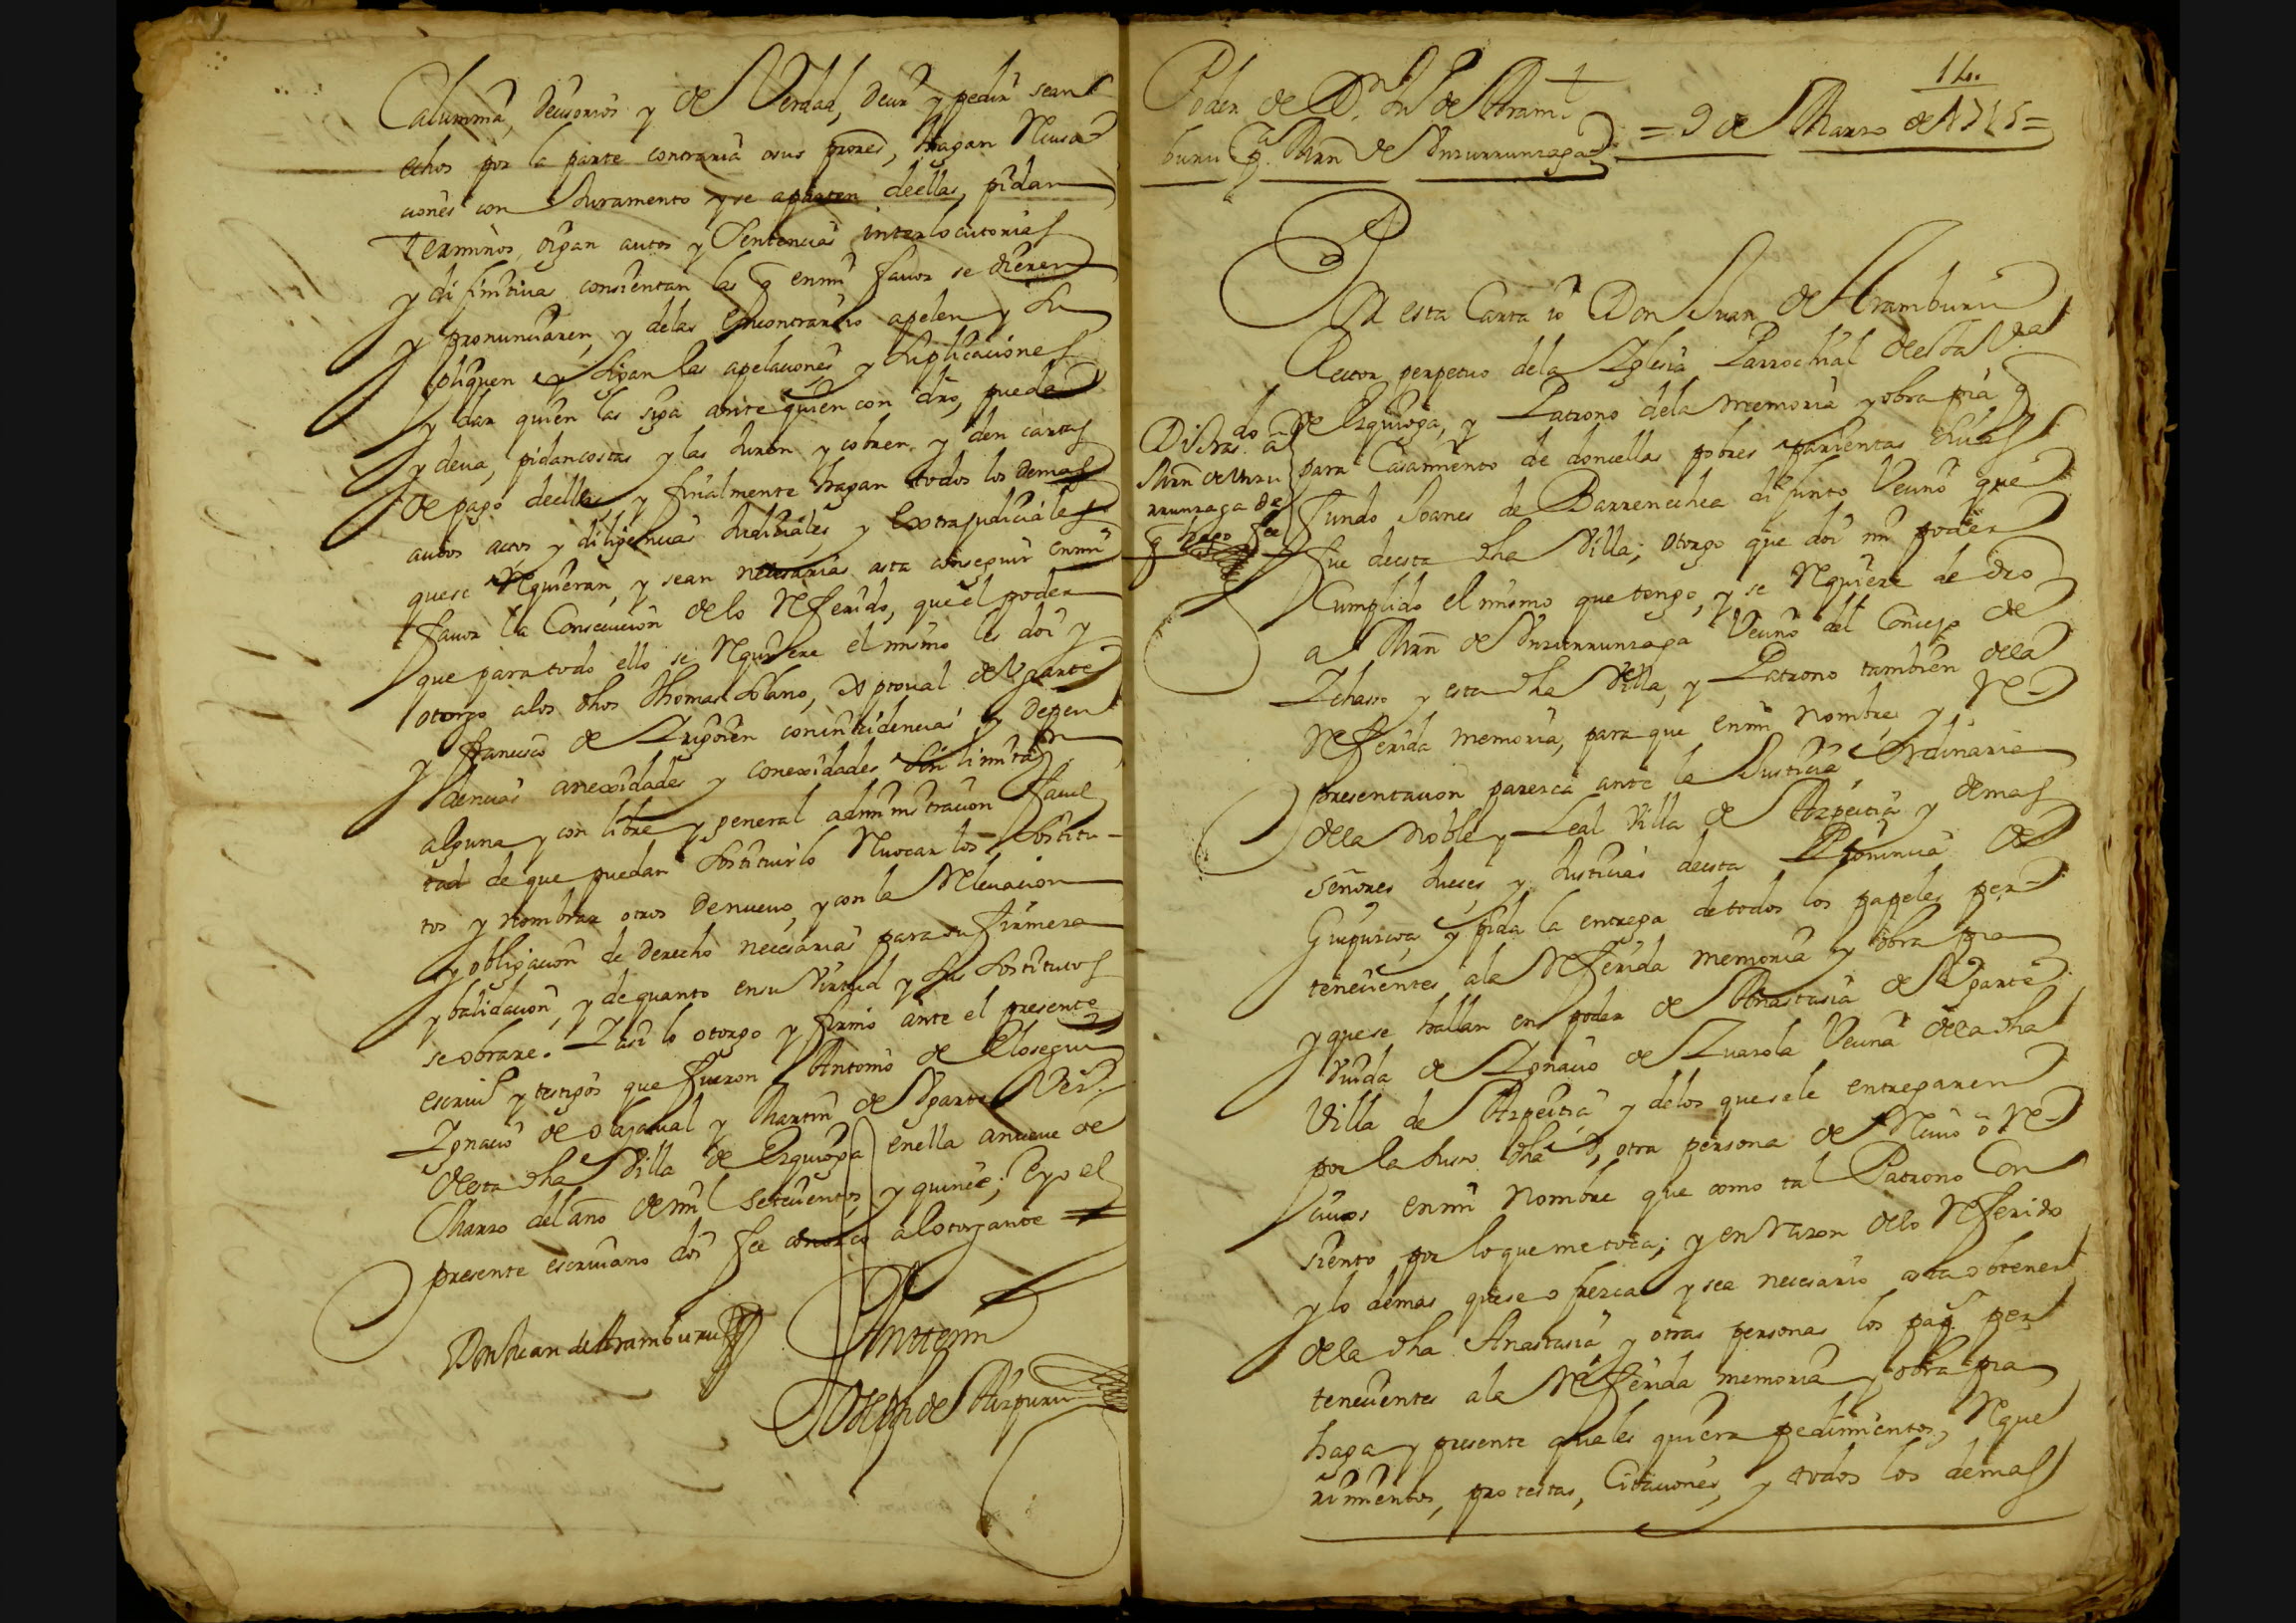 Calumnia, decisorios y de Verdad, decir y pedir sean
echos por la parte contraria osus prores, hagan Recusa
ciones con Juramento y se aparten deellas, pidan
terminos, oigan autos y Sentencias interlocutorias
y difinitivas consientan las q̃ enmi favor se dieren
y pronunciaren, y delas Encontrario apelen y Su
pliquen y Sigan las apelaciones y Suplicaciones
y dar quien las siga ante quien con dro, pueda
y deva, pidan costas y las Juren y cobren y den cartas
de pago deellas y finalmente hagan todos los demas
autos actos y diligencias Judiciales y Extrajudiciales
quese Requieran, y sean necesarias asta conseguir enmi
favor la Consecucion delo Referido, que el poder
que para todo ello se Requiere el mismo les doi y
otorgo alos dhos Thomas Solano, Xptoval de Ugarte
y Francisco de Irigoien con incidencias y depen
dencias anexidades y conexidades Sin limitaon
alguna y con libre y general administracion facul
tad de que puedan Sostituirlo Revocar los Sostitu-
tos y nombrar otros denuevo, y con la Relevacion
y obligacion de derecho necesarias para su firmeza
y balidacion, y dequanto ensu Virtud y Sus Sostitutos
se obrare. I asi lo otorgo y firmo ante el presente
escrivo y testigos que fueron Antonio de Elosegui
Ignacio de olajaval y Martin de Ugarte Vezos
desta dha Villa de Ezquioga enella anueve de
Marzo del año demil Setecientos y quince; Eyo el
presente escrivano doi fee conozco alotorgante =
Don Juan de Aramburu
Ante mi
Joseph de Aizpuru
14.
Poder de Dn Jn de Aram
buru pa Mrn de Unzurrunzaga = 9 de Marzo de 1715 =
En esta Carta io Don Juan de Aramburu
Rector perpetuo dela Iglesia Parrochial desta Va
de Ezquioga, y Patrono dela memoria y obra pia q̃
para Casamiento de doncellas pobres parientas Suias
fundo Joanes de Barrenechea difunto Vecino que
fue deesta dha Villa; otorgo que doi mi poder
Cumplido el mismo que tengo, y se Requiere de dro
a Mrn de Unzurrunzaga Vecino del Concejo de
Ichasso y esta dha Villa, y Patrono tambien dela
Referida memoria, para que enmi nombre, y Re
presentacion parezca ante la Justicia Ordinaria
dela Noble y Leal Villa de Azpeitia y demas
Señores Jueces y Justicias deesta Provincia de
Guipuzcoa, y pida la entrega de todos los papeles per-
tenecientes ala Referida memoria y obra pia
y quese hallan en poder de Anastasia de Ugarte
Viuda de Ignacio de Zuazola Vecina dela dha
Villa de Azpeitia y delos quesele entregaren
por la suso dha ó, otra persona de Recivo ó Re
civos enmi nombre que como tal Patrono Con
siento por lo que me toca; y en Razon delo Referido
y lo demas quese ofrezca y sea necesario asta obtener
dela dha Anastasia, y otras personas los pap.s per
tenecientes ala Referida memoria y obra pia
haga y presente quales quiera pedimientos, Reque
rimientos, protestas, Citaciones, y todos los demas
Di tras.do a
Mrn de Unzu
rrunzaga de
q̃ hago fee